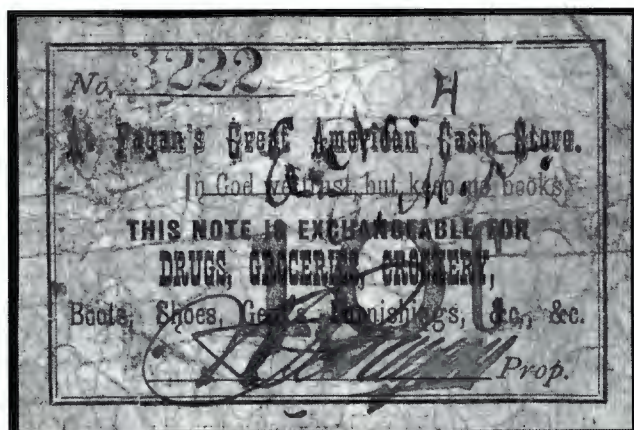 No. 3222
H
Fagan's Great American Cash Store.
In God we trust, but keep no books.
THIS NOTE IS EXCHANGEABLE FOR
DRUGS, GROCERIES, CROCKERY,
Boots, Shoes, Gent's Furnishings, &c., &c.
Prop.